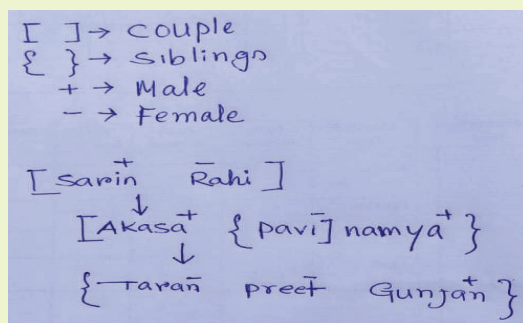 [ ] → couple
{ } → siblings
+ → Male
− → Female
[Sarin⁺ Rahi⁻]
↓
[Akasa⁺ {pavi⁻] namya⁺}
↓
{Taran⁻ preet⁻ Gunjan⁺}